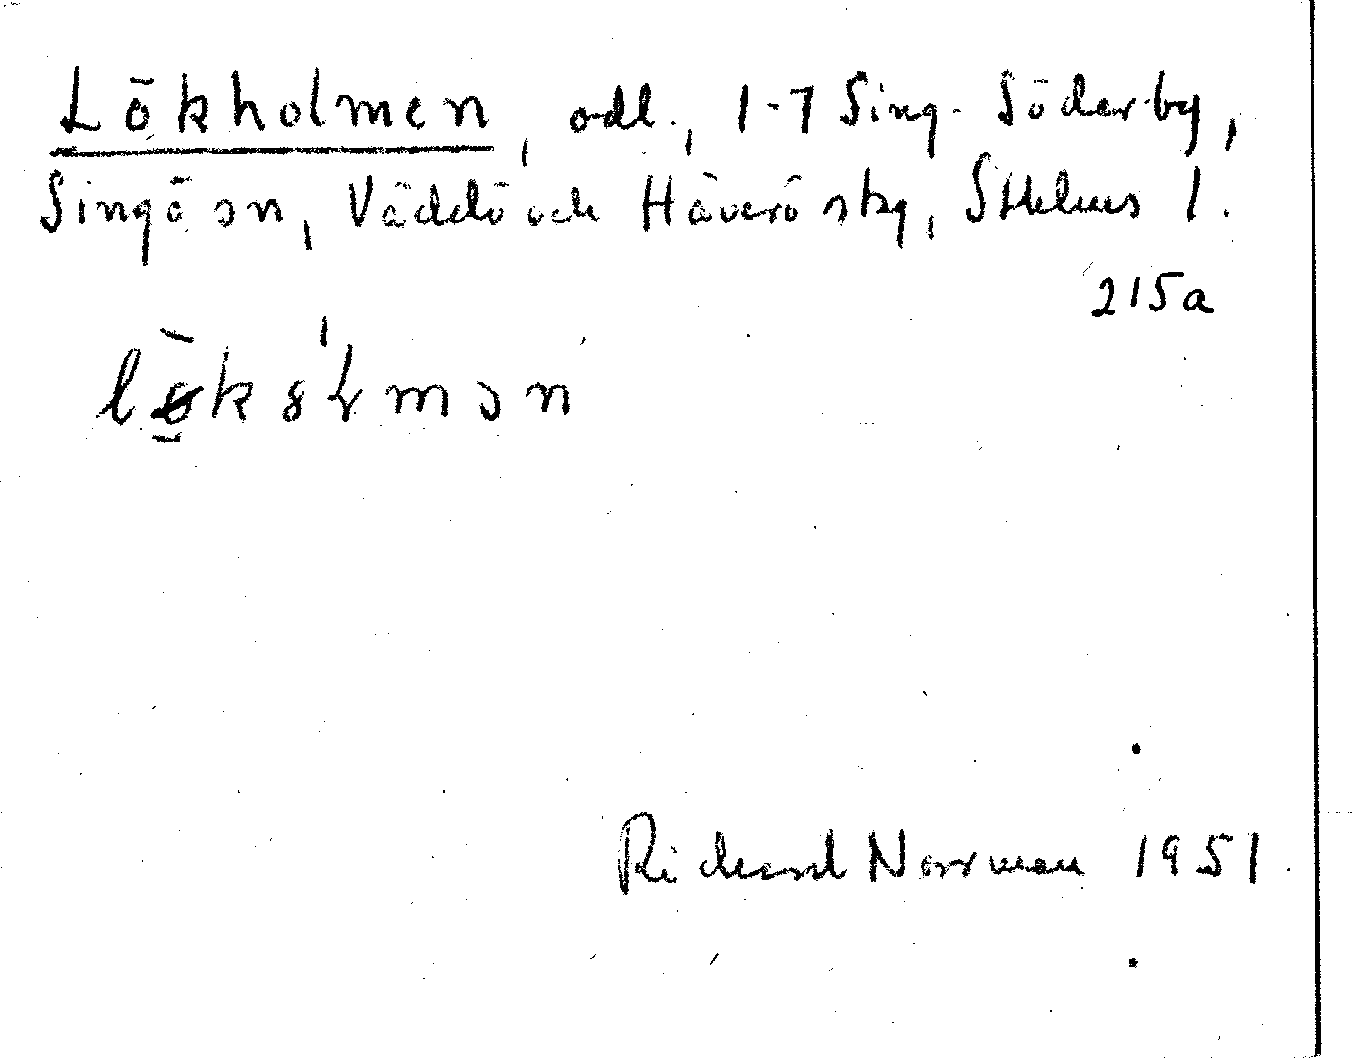 Lökholmen, odl., 1-7 Sing-Söderby,
Singö sn, Väddö och Häverö skg, Sthlms l.
215a
Richard Norrman 1951.